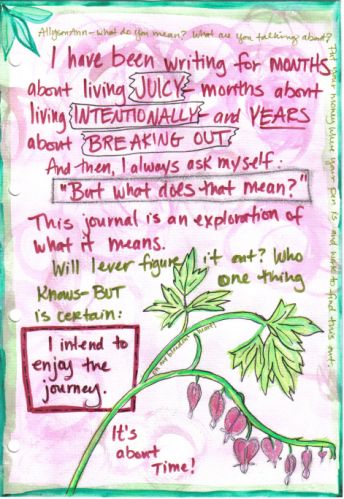 Allysonann - what do you mean? What are you talking about?
Put your money where your pen is and write to find this out.
I have been writing for MONTHS
about living JUICY - months about
living INTENTIONALLY - and YEARS
about BREAKING OUT
And then, I always ask myself:
"But what does that mean?"
This journal is an exploration of
what it means.
Will I ever figure it out? Who
Knows - BUT one thing
is certain:
I intend to
enjoy the
journey.
oh my bleeding heart!
It's
about
Time!